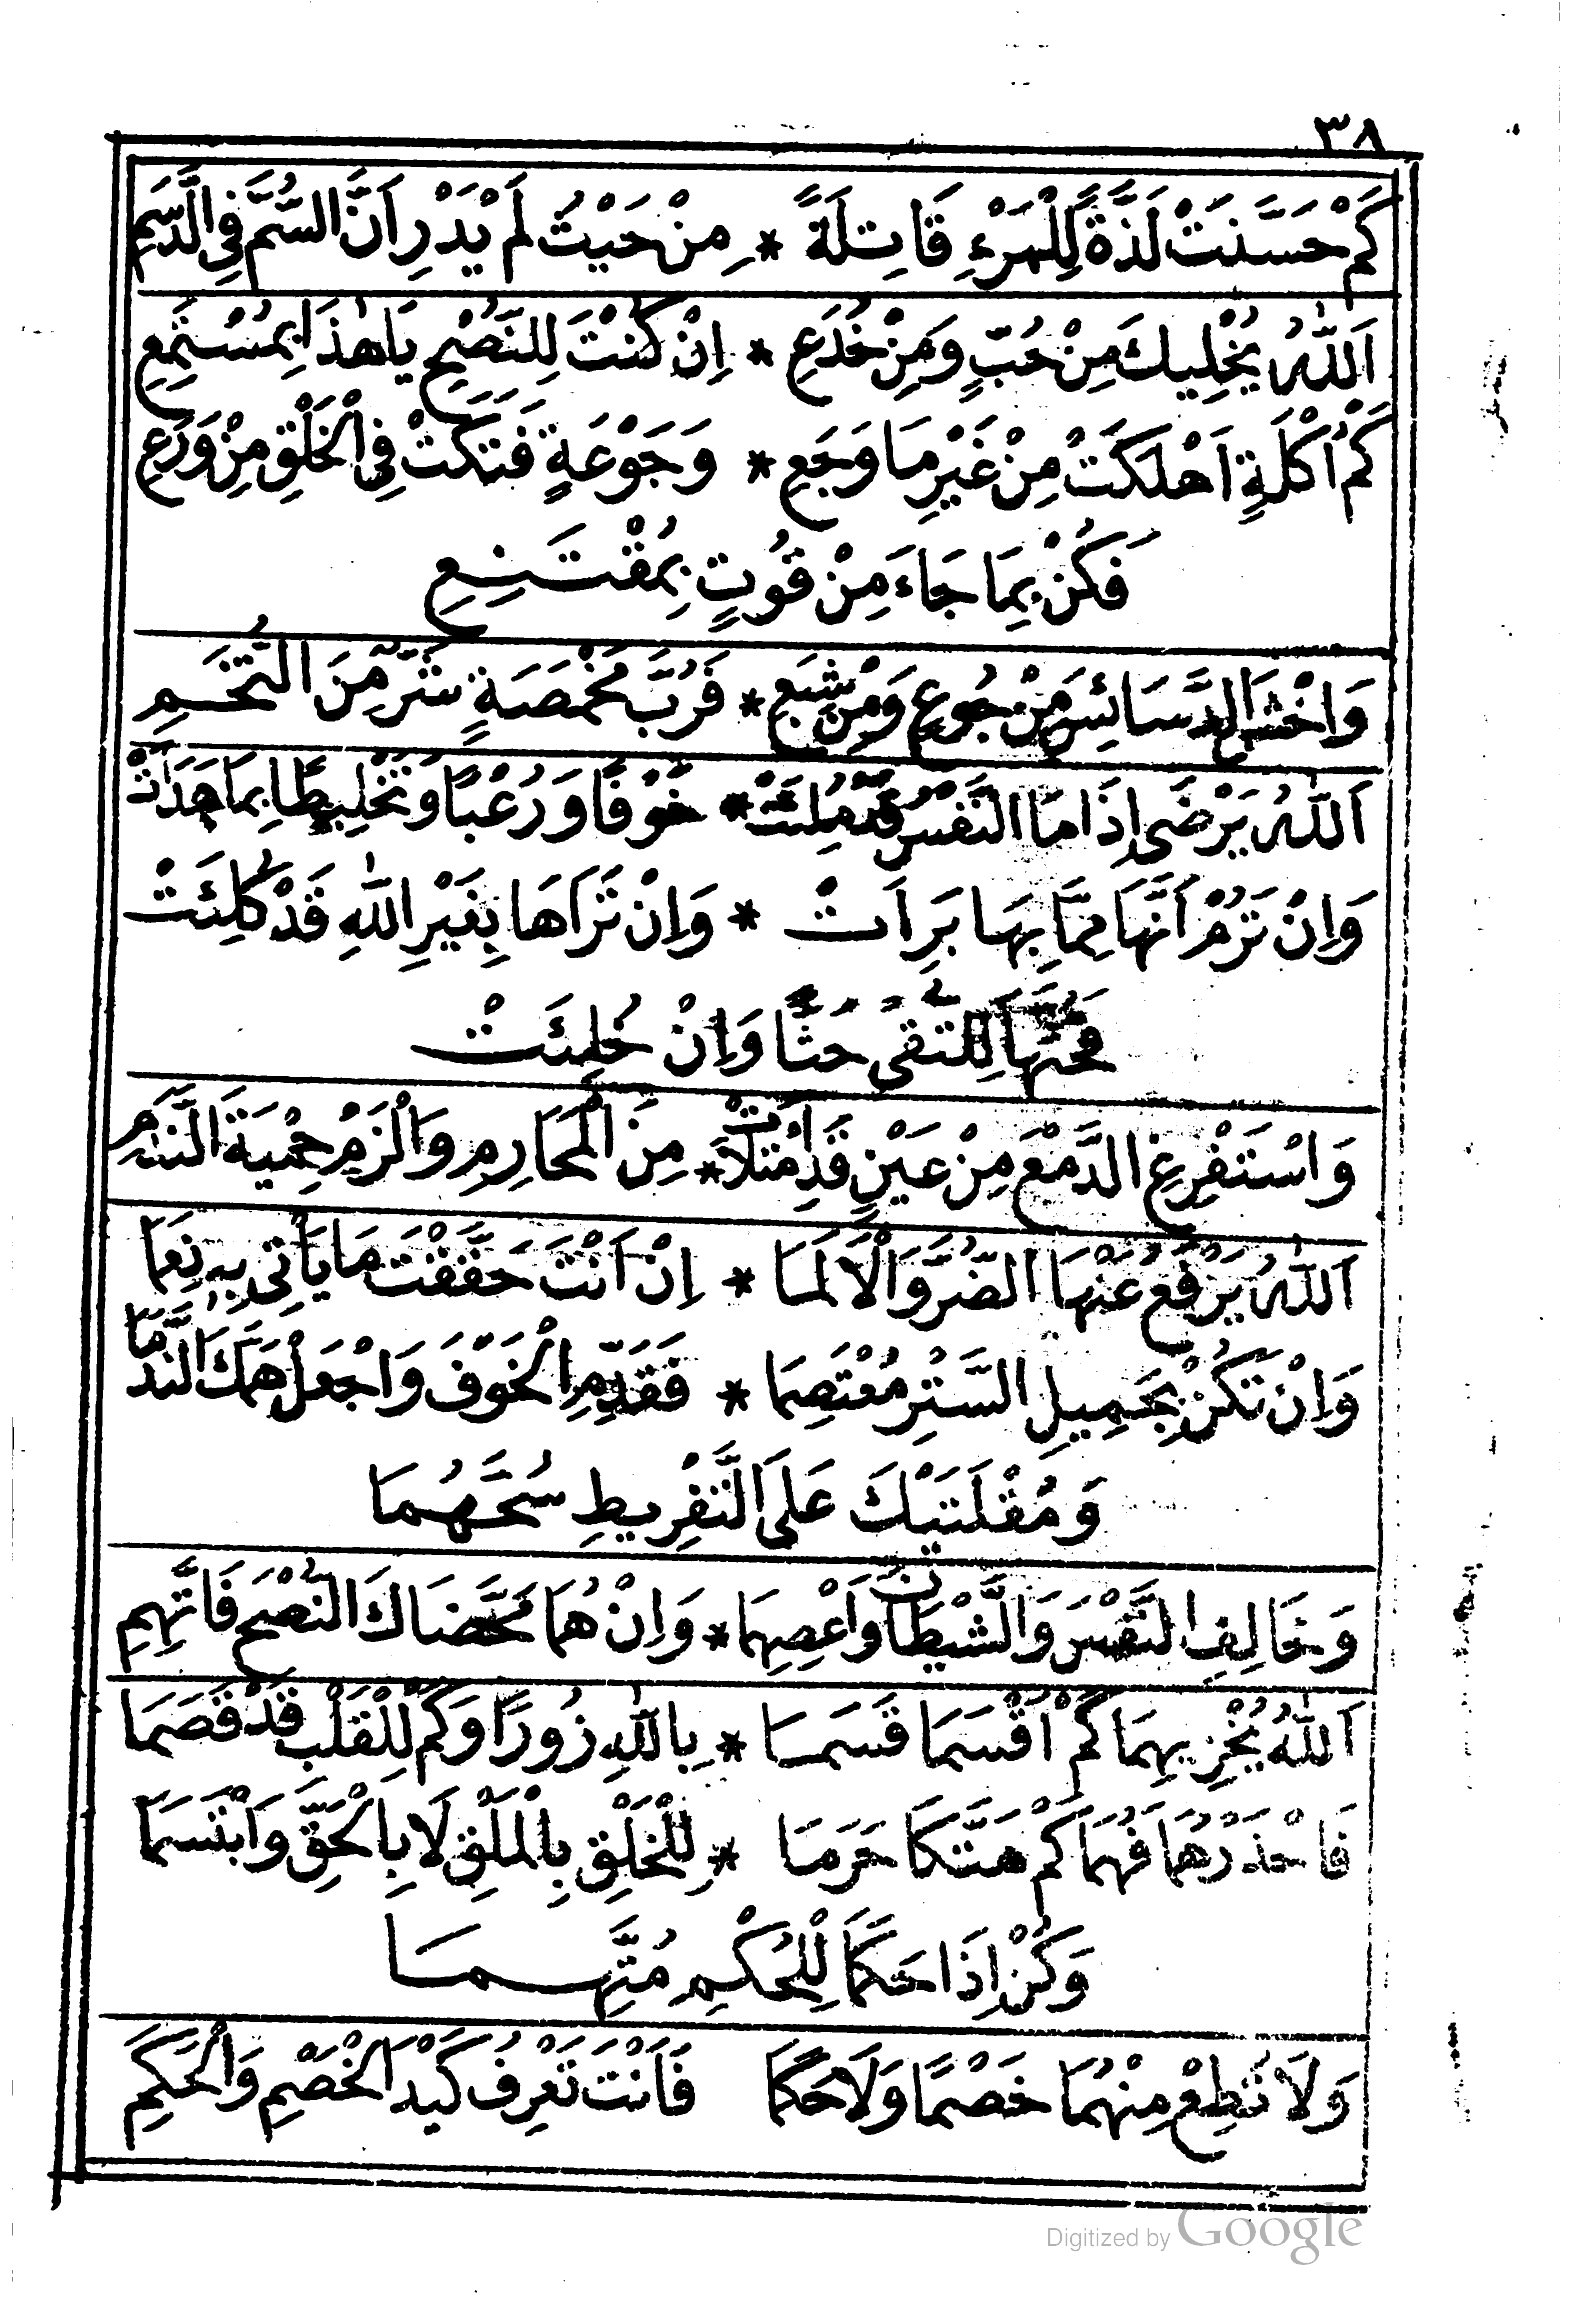 ٣٨
كَمْ حَسَّنَتْ لَذَّةً لِلْمَرْءِ قَاتِلَةً * مِنْ حَيْثُ لَمْ يَدْرِ اَنَّ السُّمَّ فِي الدَّسَمِ
اَللّٰهُ يُخْلِيكَ مِنْ حُبٍّ وَمِنْ خُدَعِ * اِنْ كُنْتَ لِلنُّصْحِ يَا هٰذَا بِمُسْتَمِعِ
كَمْ اَكْلَةٍ اَهْلَكَتْ مِنْ غَيْرِ مَا وَجَعِ * وَجَوْعَةٍ فَتَكَتْ فِي الْخَلْقِ مِنْ وَرَعِ
فَكُنْ بِمَا جَاءَ مِنْ قُوتٍ بِمُقْتَنِعِ
وَاخْشَ الدَّسَائِسَ مِنْ جُوعٍ وَمِنْ شِبَعِ * فَرُبَّ مَخْمَصَةٍ شَرٌّ مِنَ التُّخَمِ
اَللّٰهُ يَرْضَى اِذَا مَا النَّفْسُ قَدْ مُلِئَتْ * خَوْفًا وَرُعْبًا وَتَخْلِيطًا بِمَا هَدَأَتْ
وَاِنْ تَرُمْ اَنَّهَا مِمَّا بِهَا بَرِأَتْ * وَاِنْ تَرَاهَا بِغَيْرِ اللّٰهِ قَدْ كُلِئَتْ
فَحُثَّهَا لِلتُّقَى حَثًّا وَاِنْ خُلِئَتْ
وَاسْتَفْرِغِ الدَّمْعَ مِنْ عَيْنٍ قَدِ امْتَلَأَتْ * مِنَ الْمَحَارِمِ وَالْزَمْ حِمْيَةَ النَّدَمِ
اَللّٰهُ يَرْفَعُ عَنْهَا الضُّرَّ وَالْاَلَمَا * اِنْ اَنْتَ حَقَّقْتَ مَا يَأْتِي بِهِ نِعَمَا
وَاِنْ تَكُنْ بِجَمِيلِ السَّتْرِ مُعْتَصِمَا * فَقَدِّمِ الْخَوْفَ وَاجْعَلْ هَمَّكَ النَّدَمَا
وَمُقْلَتَيْكَ عَلَى التَّفْرِيطِ سُحَّهُمَا
وَخَالِفِ النَّفْسَ وَالشَّيْطَانَ وَاعْصِهِمَا * وَاِنْ هُمَا مَحَّضَاكَ النُّصْحَ فَاتَّهِمِ
اَللّٰهُ يُخْزِيهِمَا كَمْ اَقْسَمَا قَسَمَا * بِاللّٰهِ زُورًا وَكَمْ لِلْقَلْبِ قَدْ قَصَمَا
فَاحْذَرْهُمَا فَهُمَا كَمْ هَتَّكَا حَرَمَا * لِلْخَلْقِ بِالْمَلْقِ لَا بِالْحَقِّ وَابْتَسَمَا
وَكُنْ اِذَا حَكَمَا لِلْحُكْمِ مُتَّهِمَا
وَلَا تُطِعْ مِنْهُمَا خَصْمًا وَلَا حَكَمَا فَاَنْتَ تَعْرِفُ كَيْدَ الْخَصْمِ وَالْحَكَمِ
Digitized by Google